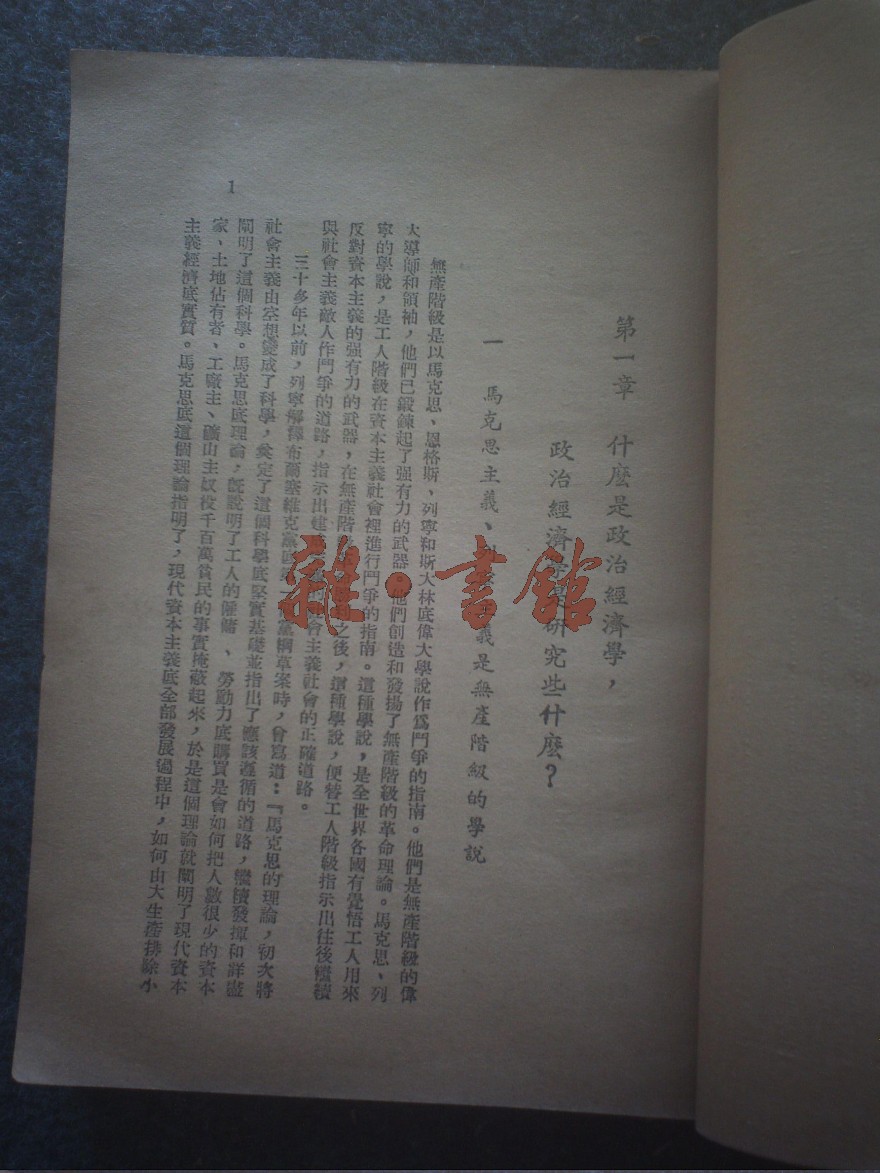 第一章　什麽是政治經濟學，
政治經濟學是研究些什麽？
一　馬克思主義、列寧主義是無產階級的學說
無產階級是以馬克思、恩格斯、列寧和斯大林底偉大學說作爲鬥爭的指南。他們是無產階級的偉
大導師和領袖，他們已鍛鍊起了强有力的武器。他們創造和發揚了無產階級的革命理論。馬克思、列
寧的學說，是工人階級在資本主義社會裡進行鬥爭的指南。這種學說，是全世界各國有覺悟工人用來
反對資本主義的强有力的武器，在無產階級　　利之後，這種學說，便替工人階級指示出往後繼續
與社會主義敵人作鬥爭的道路，指示出建　　　的社會主義社會的正確道路。
三十多年以前，列寧解釋布爾塞維克黨底第一個黨綱草案時，曾寫道：『馬克思的理論，初次將
社會主義由空想變成了科學，奠定了這個科學底堅實基礎並指出了應該遵循的道路，繼續發揮和詳盡
闡明了這個科學。馬克思底理論，旣說明了工人的僱傭、勞動力底購買是會如何把人數很少的資本
家、土地佔有者、工廠主、礦山主奴役千百萬貧民的事實掩蔽起來，於是這個理論就闡明了現代資本
主義經濟底實質。馬克思底這個理論指明了，現代資本主義底全部發展過程中，如何由大生產排除小
1
雜·書館